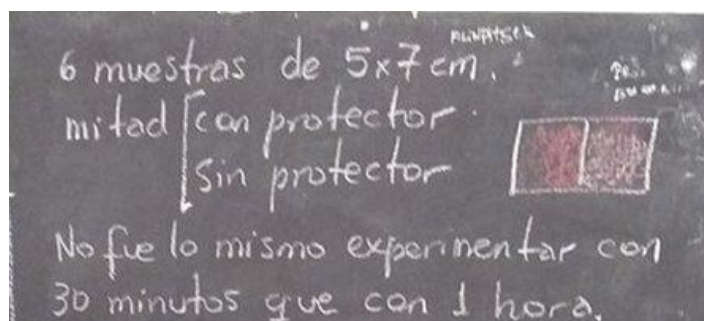 6 muestras de 5x7 cm.
mitad con protector
sin protector
No fue lo mismo experimentar con
30 minutos que con 1 hora.